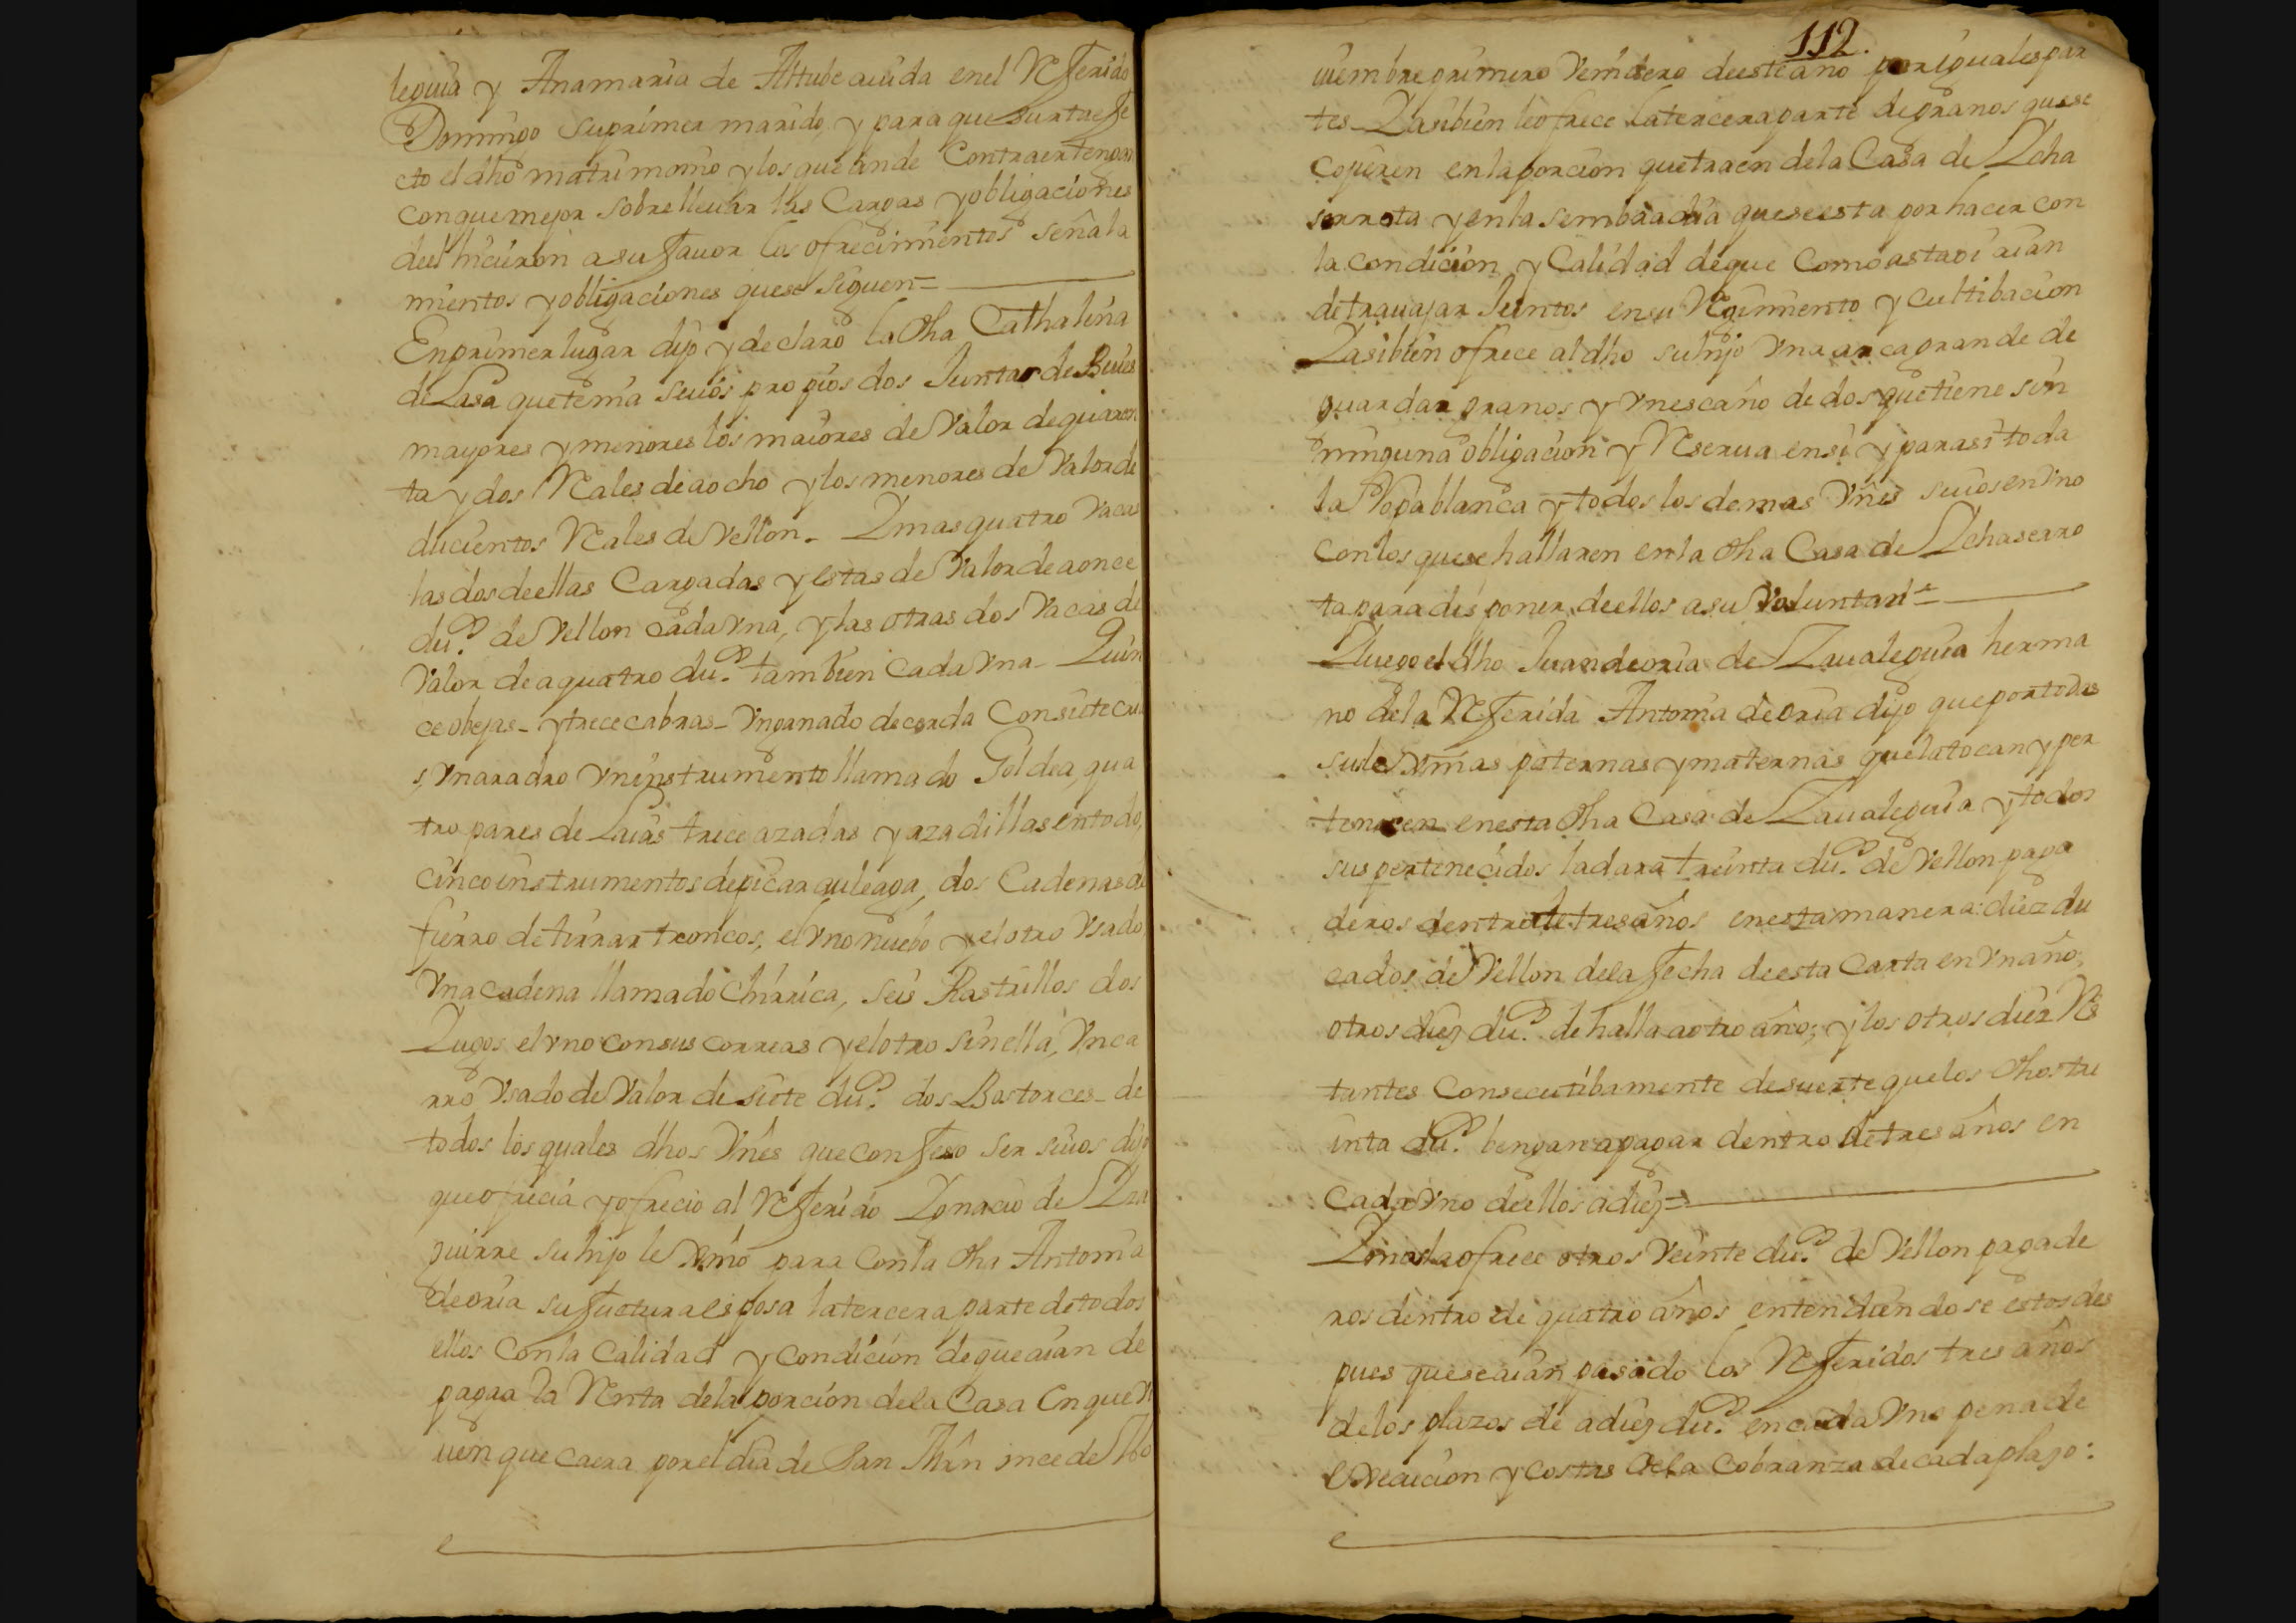 leguia y Anamaria de Altube auida enel Referido
Domingo suprimer marido, y para que surta efe
cto el dho matrimonio y los que ande contraer tengan
conque mejor sobrelleuar las Cargas y obligaciones
del hicieron a su fauor los ofrecimientos señala
mientos y obligaciones que se siguen=
En primer lugar dijo y declaro la dha Cathalina
de Lasa que tenia suios propios dos Juntas de Buies
mayores y menores los maiores de Valor de quaren
ta y dos Reales de a ocho y los menores de Valor de
ducientos Reales de Vellon. Y mas quatro Vacas
las dos de ellas Cargadas y estas de Valor de a once
du.s de Vellon cada Vna, y las otras dos Vacas de
Valor de a quatro du.s tambien cada Vna. Quin
ce obejas - y trece cabras - Vn ganado de cerda con siete cri
s, Vn aradro Vn instrumento llamado Goldea, qua
tro pares de Laias trece azadas y azadillas en todo,
cinco instrumentos de picar auleaga, dos Cadenas de
fierro de tirar troncos, el Vno nuebo y el otro Vsado,
Vna cadena llamado Charrica, seis Rastrillos dos
Yugos el vno con sus correas y el otro sin ella, Vn ca
rro Vsado de Valor de siete du.s dos Bostorces - de
todos los quales dhos Vnês que confeso ser suios dijo
que ofrecia y ofrecio al Referido Ygnacio de Yza
guirre su hijo lexmo para con la dha Antonia
de oria su fuctura esposa la tercera parte de todos
ellos con la calidad y condicion de que aian de
pagar la Renta de la porcion de la Casa en que Vi
uen que caera por el dia de San Mrn once de No
112.
uiembre primero Venidero de este año por iguales par
tes - Y asi bien le ofrece la tercera parte de granos que se
cojieren en la porcion que traen de la Casa de Ycha
serrota y en la sembradia que se esta por hacer con
la condicion y Calidad de que como asta qi aian
de trauajar Juntos en su Regimiento y cultibacion
Y asi bien ofrece al dho su hijo Vna arca grande de
guardar granos y Vn escaño de dos que tiene sin
ninguna obligacion y Reserua en si y para si toda
la Ropa blanca y todos los demas Vnês suios en Vno
con los que se hallaren en la dha Casa de Ychaserro
ta para disponer de ellos a su Voluntad=
Y luego el dho Juan de oria de Yzaualeguia herma
no de la Referida Antonia de oria dijo que por todas
sus lexmas paternas y maternas que la tocan y per
tenecen en esta dha Casa de Yzaualeguia y todos
sus pertenecidos la dara treinta du.s de Vellon paga
deros dentro de tres años en esta manera: diez du
cados de Vellon de la fecha de esta Carta en Vn año;
otros diez du.s de halla a otro año; y los otros diez Res
tantes consecutibamente de suerte que los dhos tre
inta du.s bengan a pagar dentro de tres años en
Cada Vno de ellos a diez=
Y mas la ofrece otros veinte du.s de Vellon pagade
ros dentro de quatro años entendiendose estos des
pues que se aian pasado los Referidos tres años
de los plazos de a diez du.s en cada Vno pena de
execucion y costas de la cobranza de cada plazo: